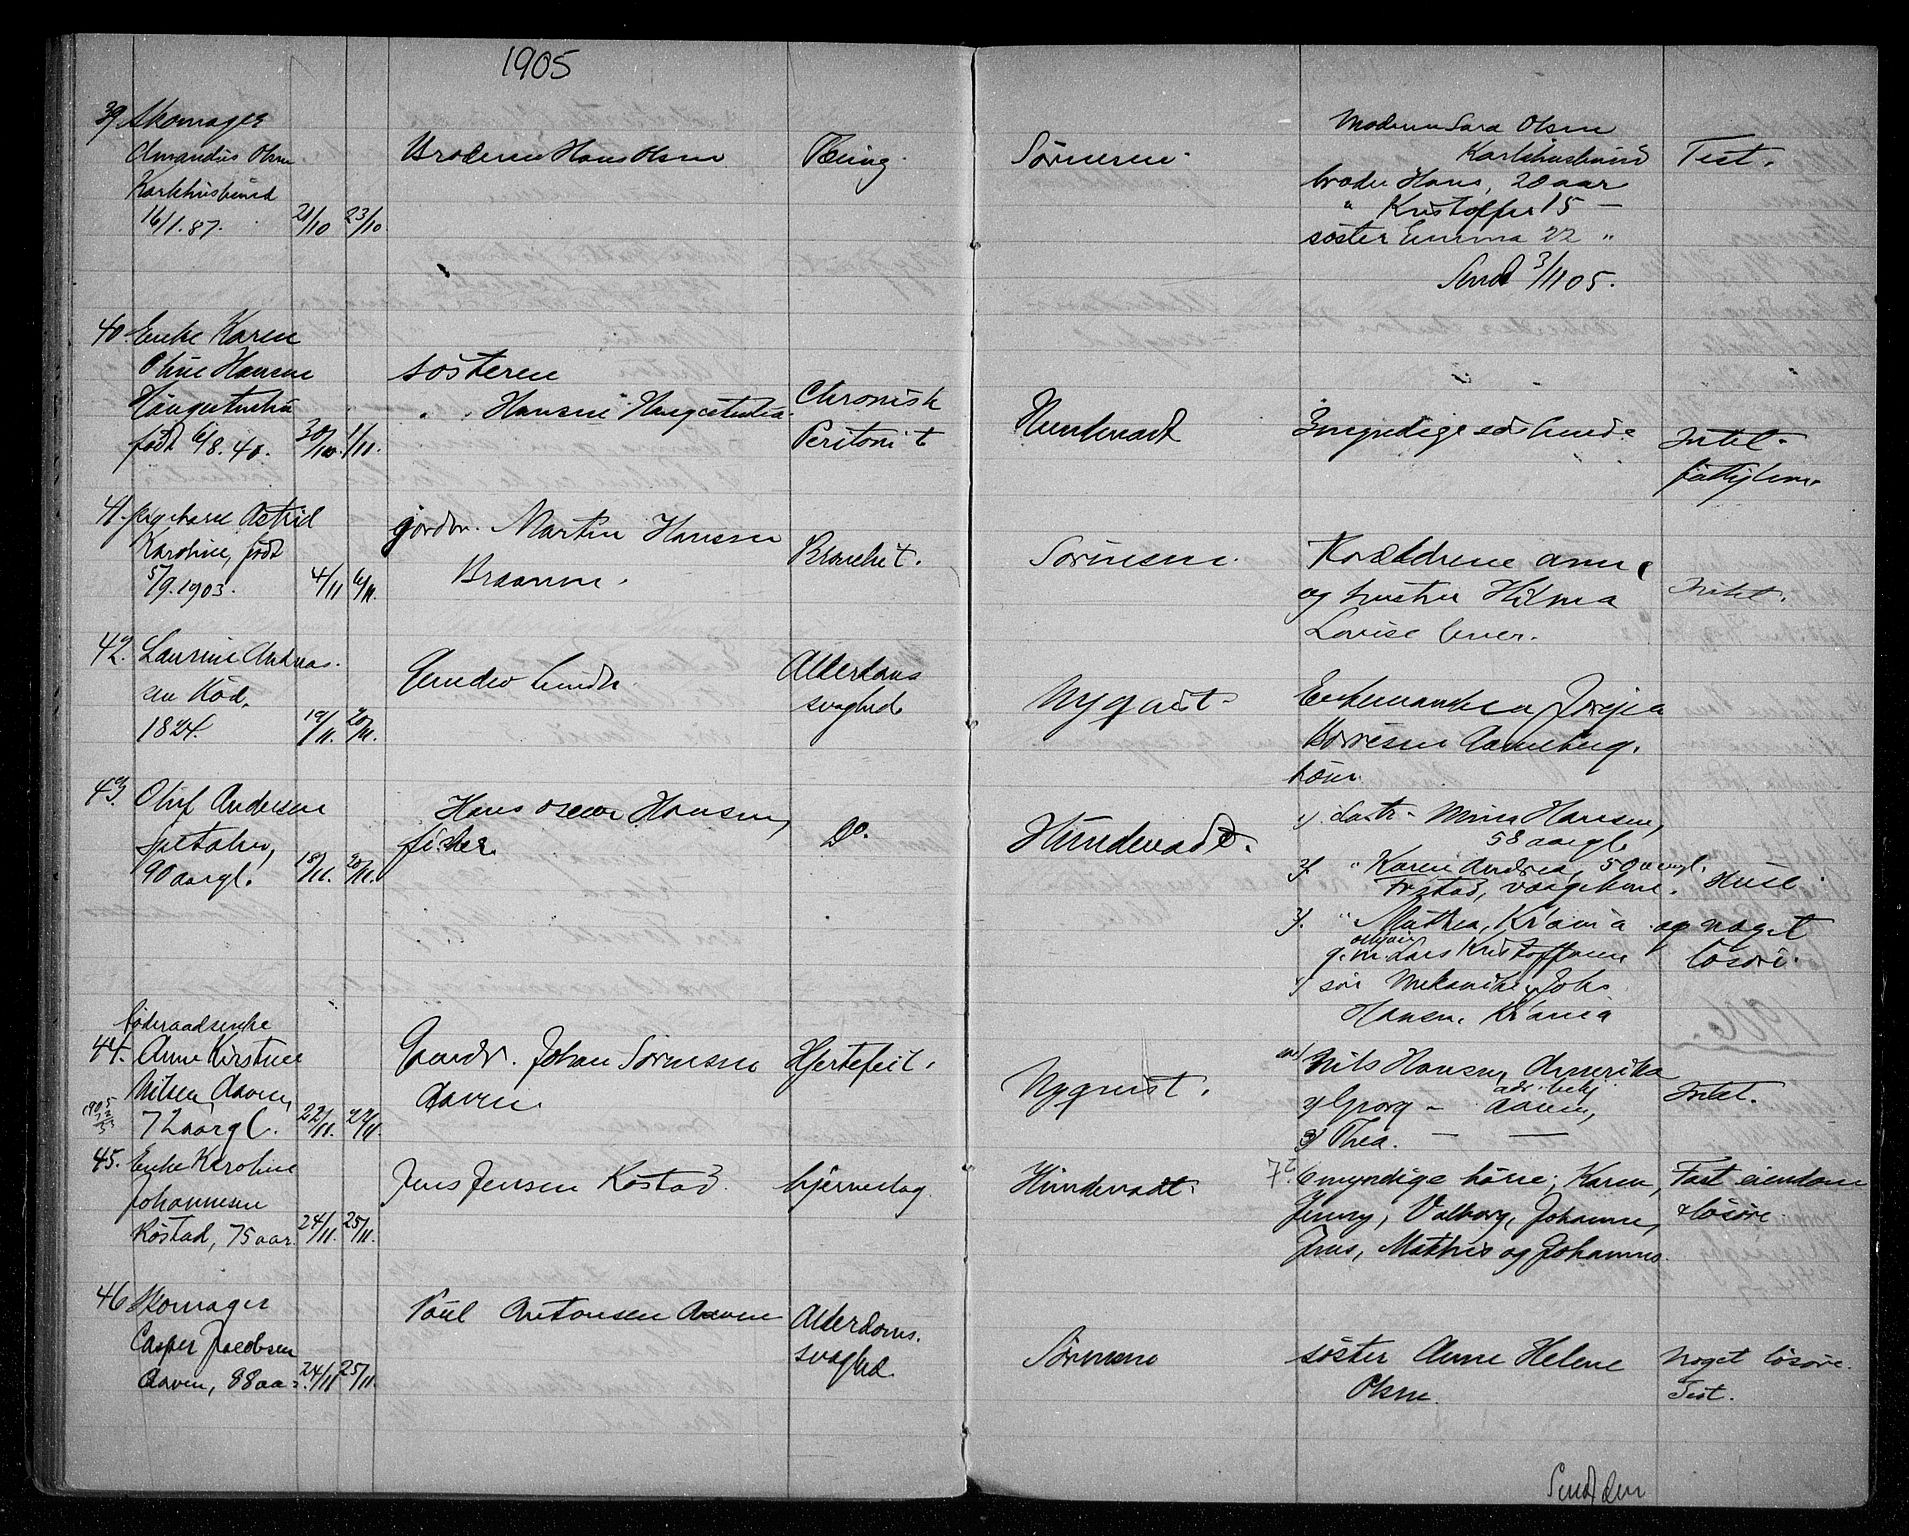 1905
39. Skomager
Amandus Olsen
Karlshusbund
16/1.87. 21/10 23/10
Broderen Hans Olsen
Tæring.
Sørensen.
Moderen Sara Olsen
Karlshusbund
broder Hans, 20 aar
" Kristoffer 15 —
søster Emma 22 "
Send 3/11 05.
Test.
40. Enke Karen
Oline Hansen
Haugestuen
født 6/8.40. 30/10. 1/11.
søsteren
Hansen Haugestuen
Chronisk
Peritonit
Hundevadt
Emyndige søskende
Intet.
fattiglem.
41. pigebarn Astrid
Karoline, født
5/9.1903. 4/11 6/11.
gårdbr. Martin Hansen
Braanen.
Bronchit.
Sørensen.
Forældrene anm.
og hustru Hilma
Lovise
Intet.
42. Laurine Andreas-
sen Kød.
1824. 19/11. 20/11.
Alderdoms
svaghed
Nyquist.
Enkemanden
Børresen
børn
43. Oluf Andersen
90 aargl. 18/11. 20/11.
Hans Oscar Hansen,
fisker
Do.
Hundevadt.
1) datr. Mina Hansen,
58 aargl.
2) " Karen Andrea, 50 aargl.
3) " Mathea, Kr'ania
g. m. Lars Kristoffersen
4) søn Mekaniker Johs
Hansen, Kr'ania
Huse
og noget
løsøre.
føderaadsenke
44. Anne Kirstine
Nilsen, Aaven,
72 aargl. 22/11. 24/11
1905
72
Gaardbr. Johan Sørensen
Aaven.
Hjertefeil.
Nyquist.
1) Nils Hansen, Amerika
2) Georg — Aaven,
3) Thea. — —
Intet.
45. Enke Karoline
Johannesen
Røstad, 75 aar. 24/11. 25/11.
Jens Jensen Røstad.
hjerneslag.
Hundevadt.
7 myndige børn; Karen,
Jenny, Valborg, Johanne,
Jens, Mathis og Johannes.
Fast eiendom
& løsøre.
46. Skomager
Casper Jacobsen
Aaven, 88 aar 24/11 25/11.
Poul Antonsen Aaven
Alderdoms.
svaghed.
Sørensen
søster Anne Helene
Olsen.
Noget løsøre.
Test.
Send den